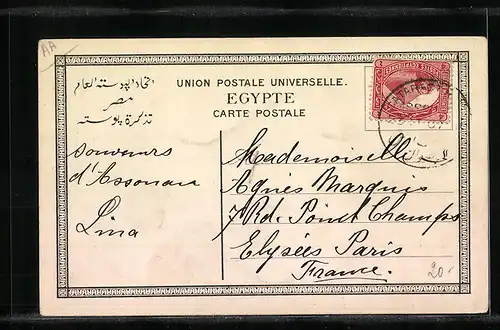 AA
UNION POSTALE UNIVERSELLE.
EGYPTE
CARTE POSTALE
اتحاد البوسته العام
مصر
تذكرة بوسته
Souvenirs
d'Assouan
Lina
Mademoiselle
Agnès Marquis
7 Rd. Point Champs
Elysées Paris
France.
20.-